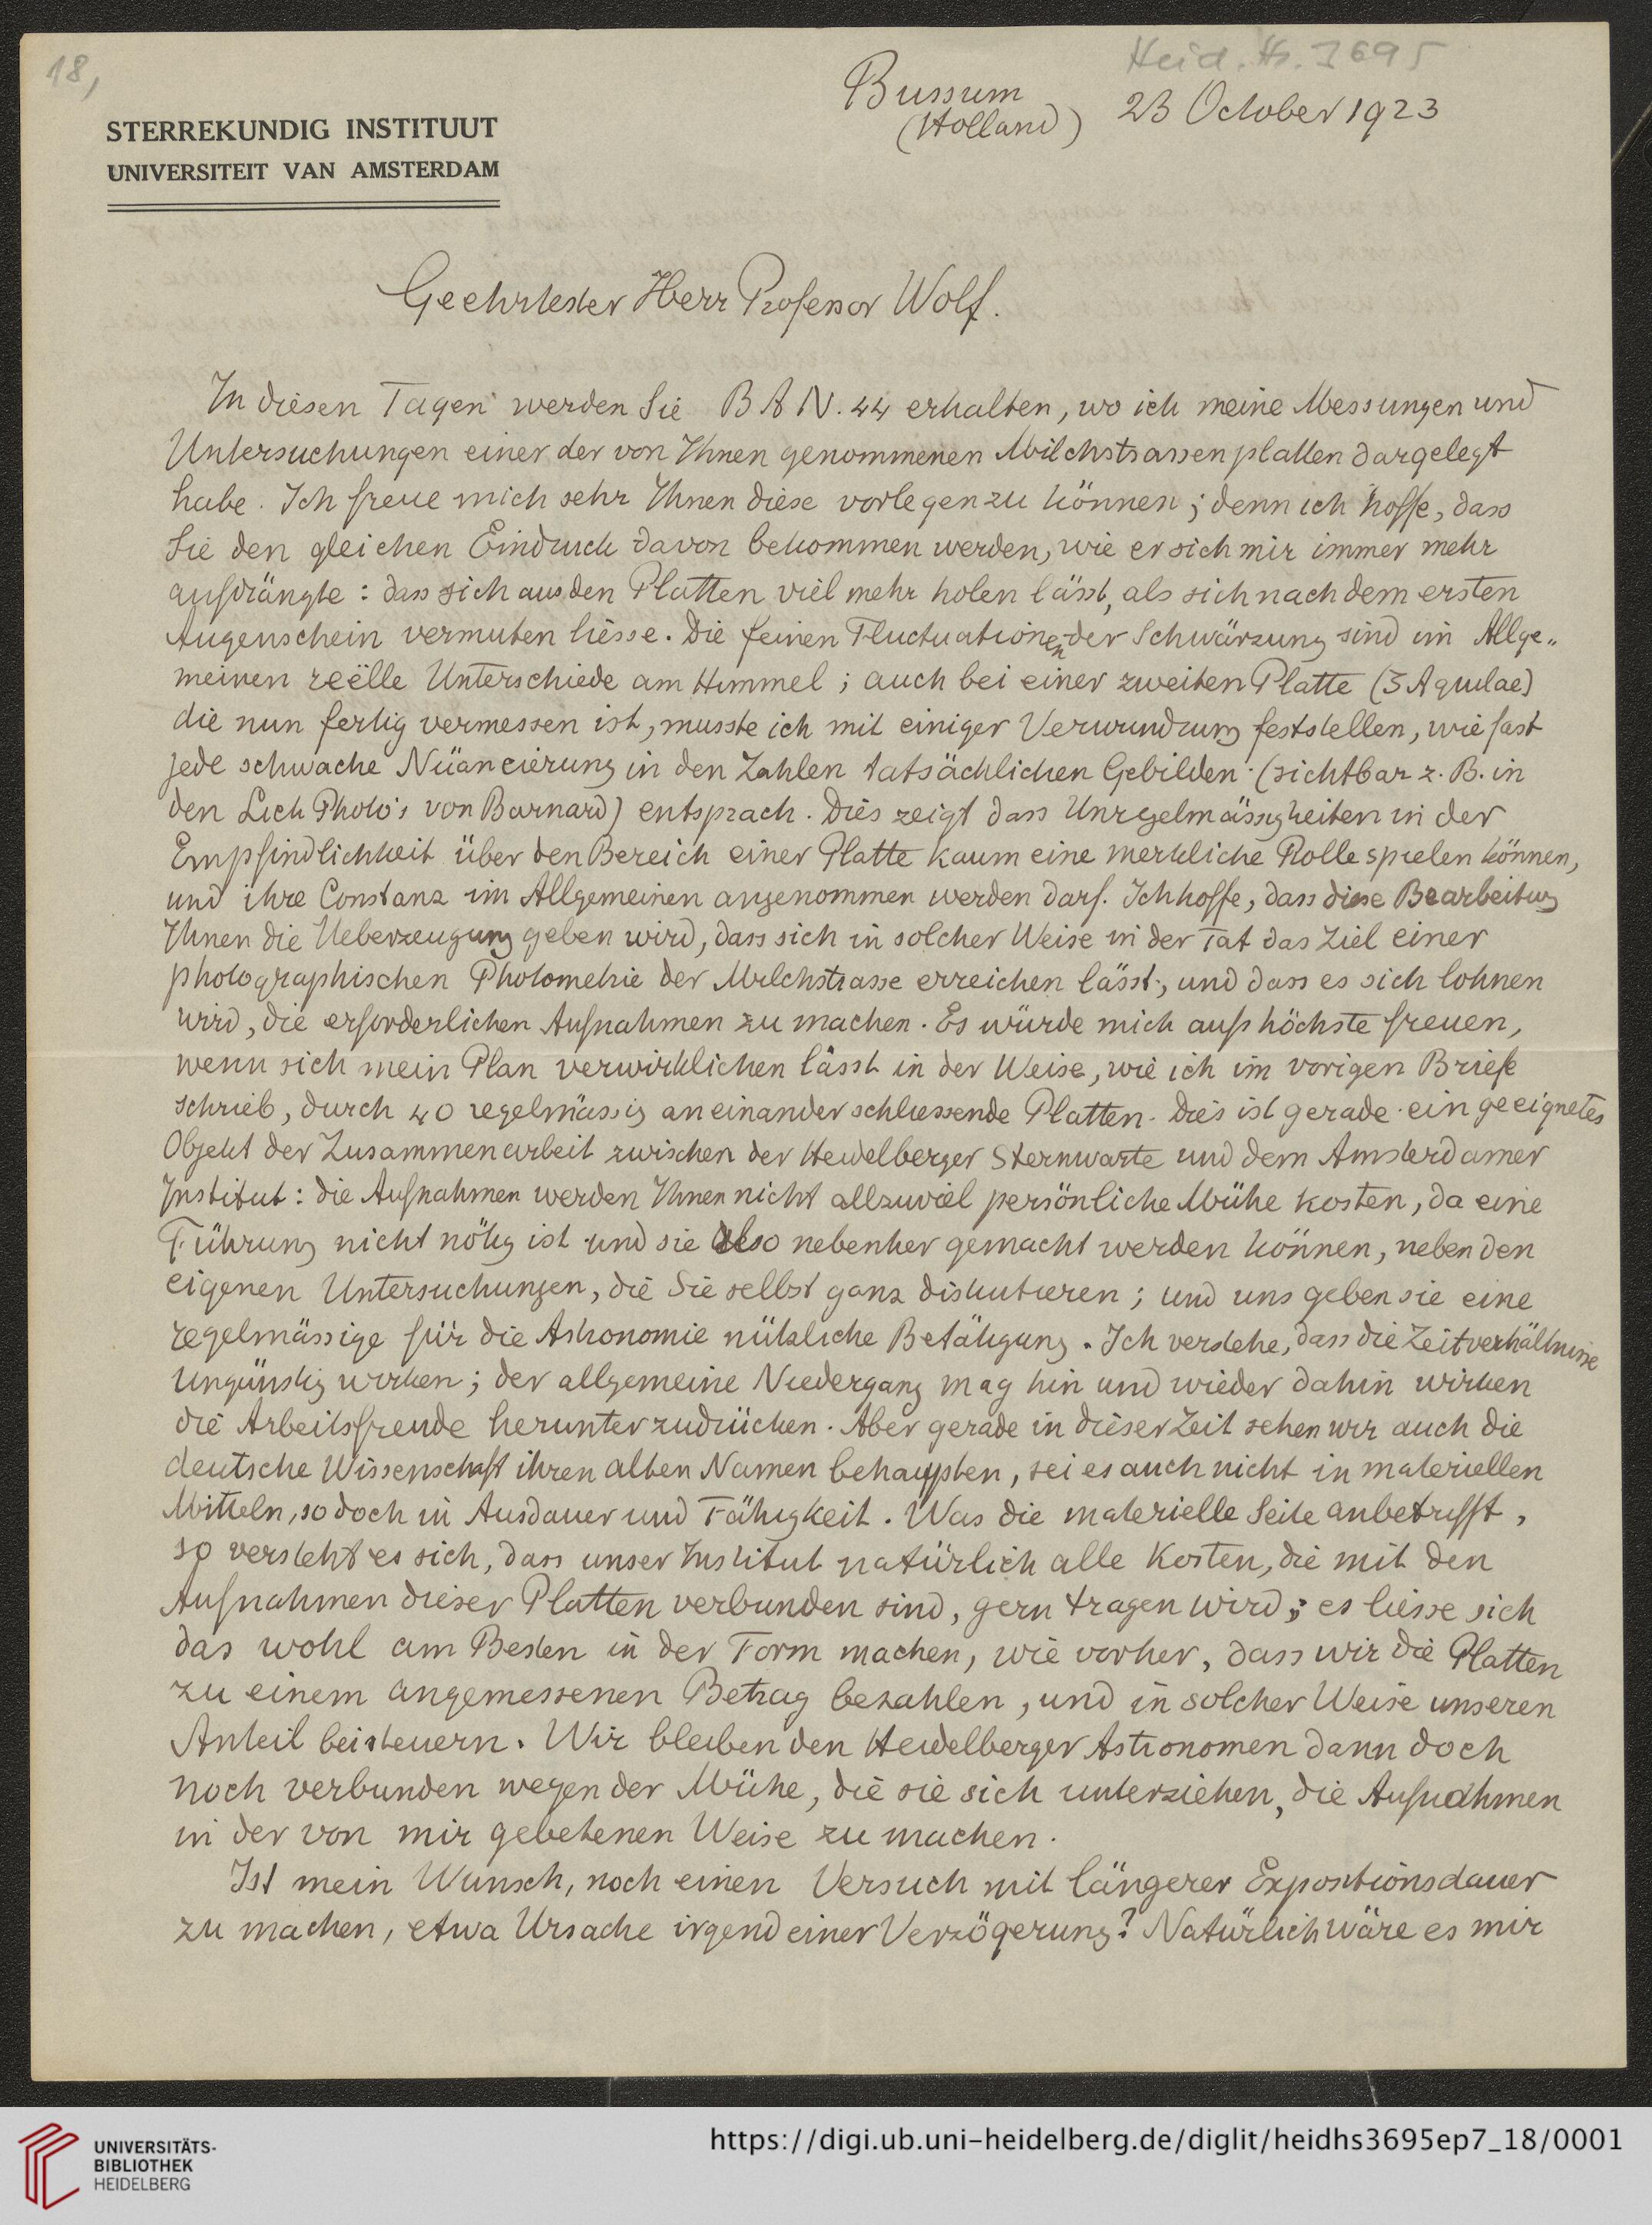 18,
Heid. Hs. 3695
Bussum
(Holland)
23 October 1923
STERREKUNDIG INSTITUUT
UNIVERSITEIT VAN AMSTERDAM
Geehrtester Herr Professor Wolf.
In diesen Tagen werden Sie B A N. 44 erhalten, wo ich meine Messungen und
Untersuchungen einer der von Ihnen genommenen Milchstrassenplatten dargelegt
habe. Ich freue mich sehr Ihnen diese vorlegen zu können; denn ich hoffe, dass
Sie den gleichen Eindruck davon bekommen werden, wie er sich mir immer mehr
aufdrängte: dass sich aus den Platten viel mehr holen lässt, als sich nach dem ersten
Augenschein vermuten liesse. Die feinen Fluctuationen der Schwärzung sind im Allge„
meinen reëlle Unterschiede am Himmel; auch bei einer zweiten Platte (ζ Aquilae)
die nun fertig vermessen ist, musste ich mit einiger Verwundrung feststellen, wie fast
jede schwache Nüancierung in den Zahlen tatsächlichen Gebilden (sichtbar z. B. in
den Lick Photo's von Barnard) entsprach. Dies zeigt dass Unregelmässigkeiten in der
Empfindlichkeit über den Bereich einer Platte kaum eine merkliche Rolle spielen können,
und ihre Constanz im Allgemeinen angenommen werden darf. Ich hoffe, dass diese Bearbeitung
Ihnen die Ueberzeugung geben wird, dass sich in solcher Weise in der Tat das Ziel einer
photographischen Photometrie der Milchstrasse erreichen lässt, und dass es sich lohnen
wird, die erforderlichen Aufnahmen zu machen. Es würde mich aufs höchste freuen,
wenn sich mein Plan verwirklichen lässt in der Weise, wie ich im vorigen Briefe
schrieb, durch 40 regelmässig aneinander schliessende Platten. Dies ist gerade ein geeignetes
Objekt der Zusammenarbeit zwischen der Heidelberger Sternwarte und dem Amsterdamer
Institut: die Aufnahmen werden Ihnen nicht allzuviel persönliche Mühe kosten, da eine
Führung nicht nötig ist und sie also nebenher gemacht werden können, neben den
eigenen Untersuchungen, die Sie selbst ganz diskutieren; und uns geben sie eine
regelmässige für die Astronomie nützliche Betätigung. Ich verstehe, dass die Zeitverhältnisse
ungünstig wirken; der allgemeine Niedergang mag hin und wieder dahin wirken
die Arbeitsfreude herunterzudrücken. Aber gerade in dieser Zeit sehen wir auch die
deutsche Wissenschaft ihren alten Namen behaupten, sei es auch nicht in materiellen
Mitteln, so doch in Ausdauer und Fähigkeit. Was die materielle Seite anbetrifft,
so versteht es sich, dass unser Institut natürlich alle Kosten, die mit den
Aufnahmen dieser Platten verbunden sind, gern tragen wird; es liesse sich
das wohl am Besten in der Form machen, wie vorher, dass wir die Platten
zu einem angemessenen Betrag bezahlen, und in solcher Weise unseren
Anteil beisteuern. Wir bleiben den Heidelberger Astronomen dann doch
noch verbunden wegen der Mühe, die sie sich unterziehen, die Aufnahmen
in der von mir gebetenen Weise zu machen.
Ist mein Wunsch, noch einen Versuch mit längerer Expositionsdauer
zu machen, etwa Ursache irgend einer Verzögerung? Natürlich wäre es mir
UNIVERSITÄTS-
BIBLIOTHEK
HEIDELBERG
https://digi.ub.uni-heidelberg.de/diglit/heidhs3695ep7_18/0001